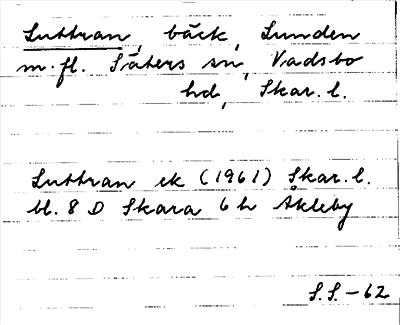 Luttran, bäck, Lunden
m.fl. Säters sn, Vadsbo
hd, Skar. l.
Luttran ek (1961) Skar. l.
bl. 8 D Skara 6 h Åkleby
S.S. -62